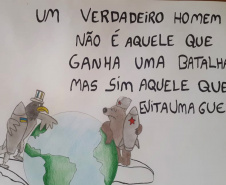 UM VERDADEIRO HOMEM
NÃO É AQUELE QUE
GANHA UMA BATALHA
MAS SIM AQUELE QUE
EVITA UMA GUE